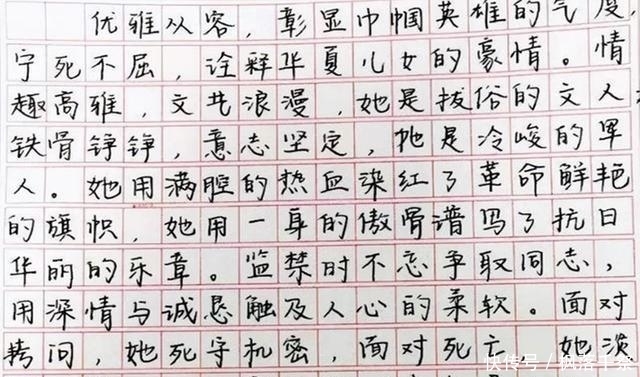 优雅从容，彰显巾帼英雄的气度，
宁死不屈，诠释华夏儿女的豪情。情
趣高雅，文艺浪漫，她是拔俗的文人
铁骨铮铮，意志坚定，她是冷峻的军
人。她用满腔的热血染红了革命鲜艳
的旗帜，她用一身的傲骨谱写了抗日
华丽的乐章。监禁时不忘争取同志，
用深情与诚恳触及人心的柔软。面对
拷问，她死守机密，面对死亡，她淡
快传号/枫落千秦